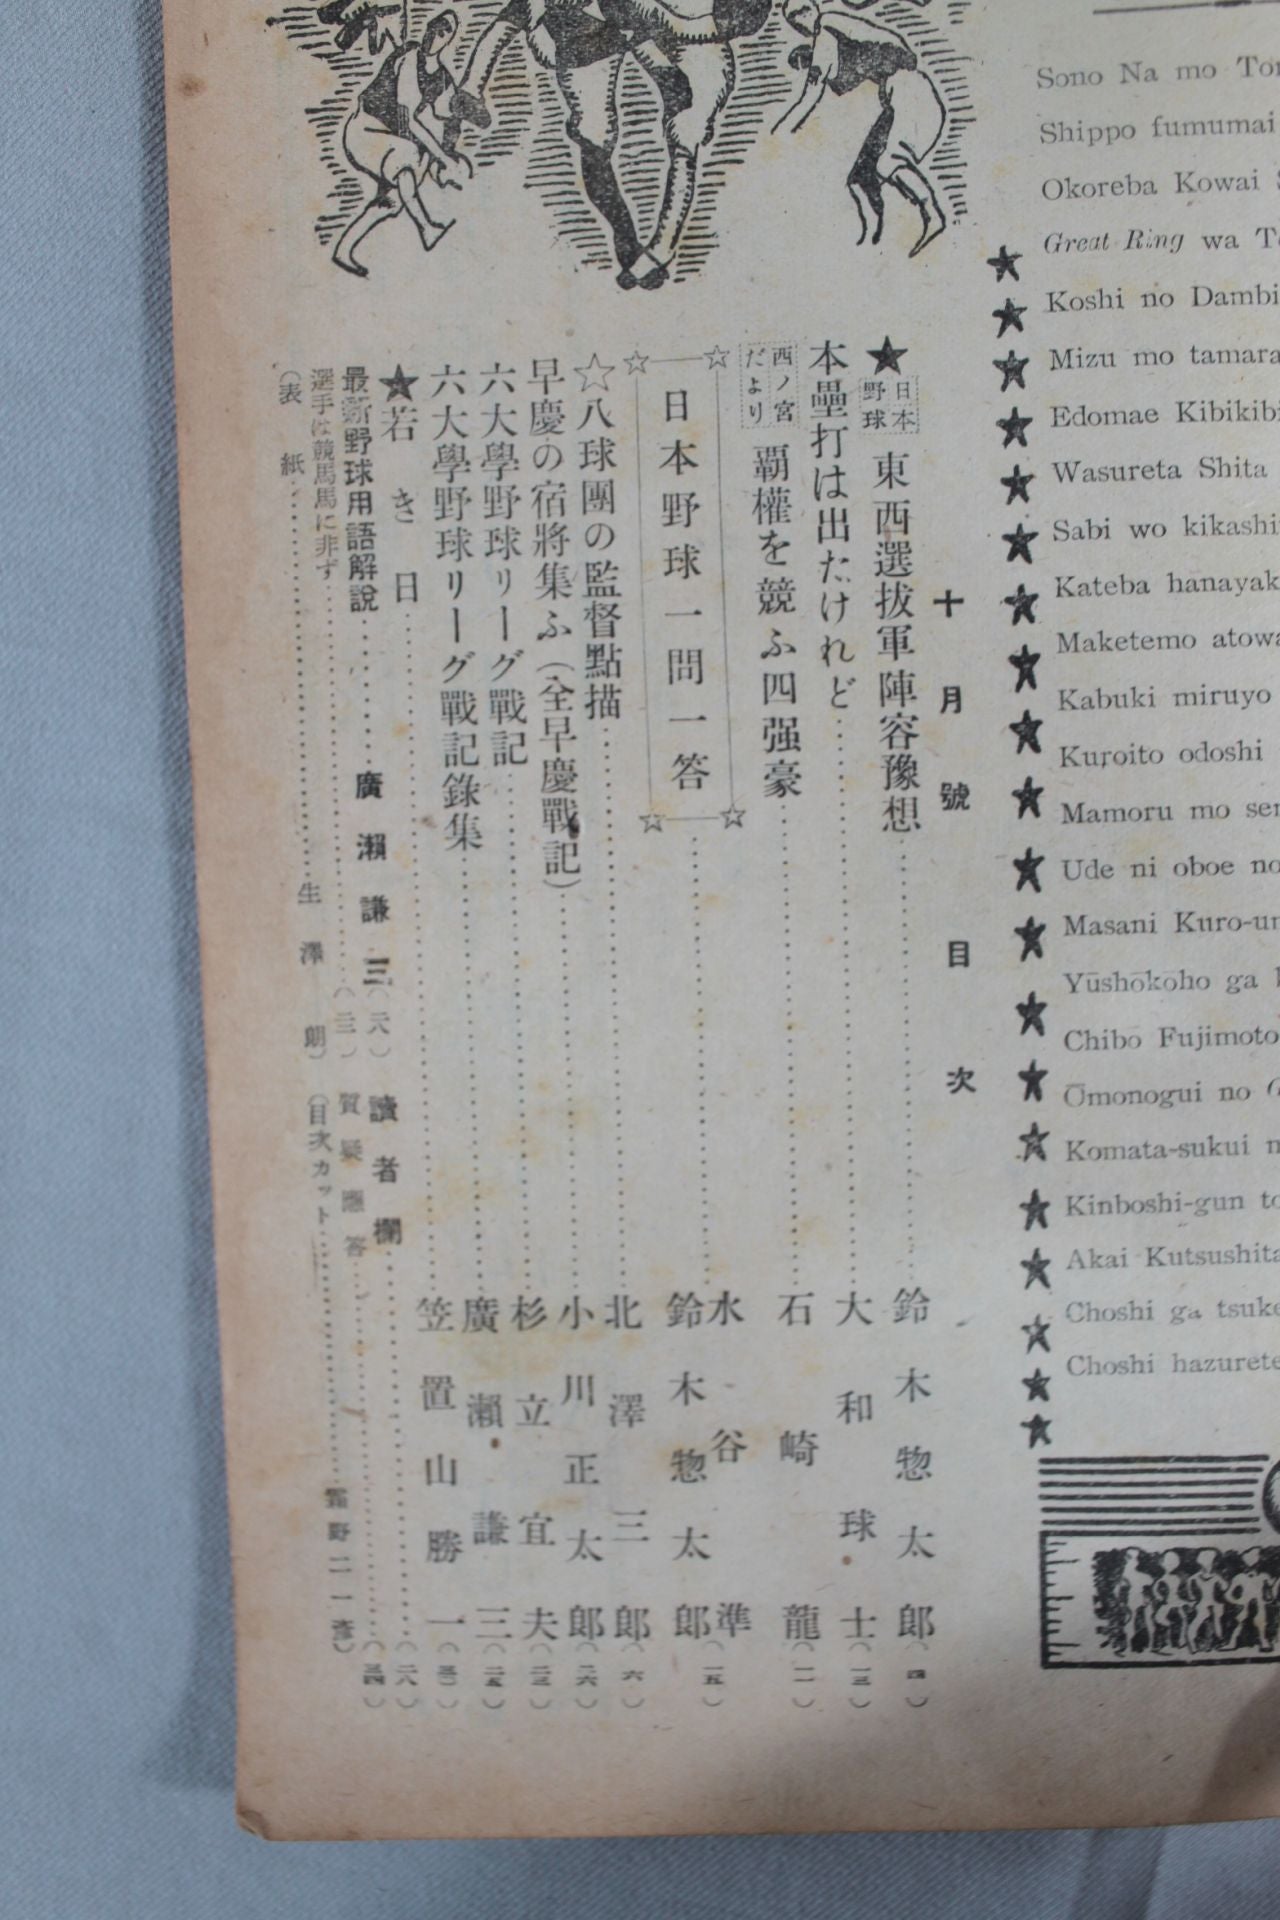 Sono Na mo
Shippo fumumai
Okoreba Kowai
Great Ring wa
Koshi no Dambi
Mizu mo tamara
Edomae Kibikibi
Wasureta Shita
Sabi wo kikashi
Kateba hanayak
Maketemo atowa
Kabuki miruyo
Kuroito odoshi
Mamoru mo sen
Ude ni oboe no
Masani Kuro-un
Yūshōkoho ga
Chibo Fujimoto
Ōmonogui no
Komata-sukui
Kinboshi-gun to
Akai Kutsushita
Choshi ga tsuke
Choshi hazurete
十月號目次
★日本野球 東西選拔軍陣容豫想……鈴木惣太郎(四)
本壘打は出たけれど……大和球士(一三)
西ノ宮だより 覇權を競ふ四强豪……石崎龍(一一)
☆日本野球一問一答☆……水谷準 鈴木惣太郎(一五)
☆八球團の監督點描……北澤三郎(六)
早慶の宿將集ふ(全早慶戰記)……小川正太郎(二六)
六大學野球リーグ戰記……杉立宜夫(二三)
六大學野球リーグ戰記錄集……廣瀨謙三(二五)
★若き日……笠置山勝一(三〇)
最新野球用語解說……廣瀨謙三(二六) 讀者欄……(二八)
選手は競馬馬に非ず……(三一) 質疑應答……(三四)
(表紙……生澤朗) (目次カット……霜野二一彥)